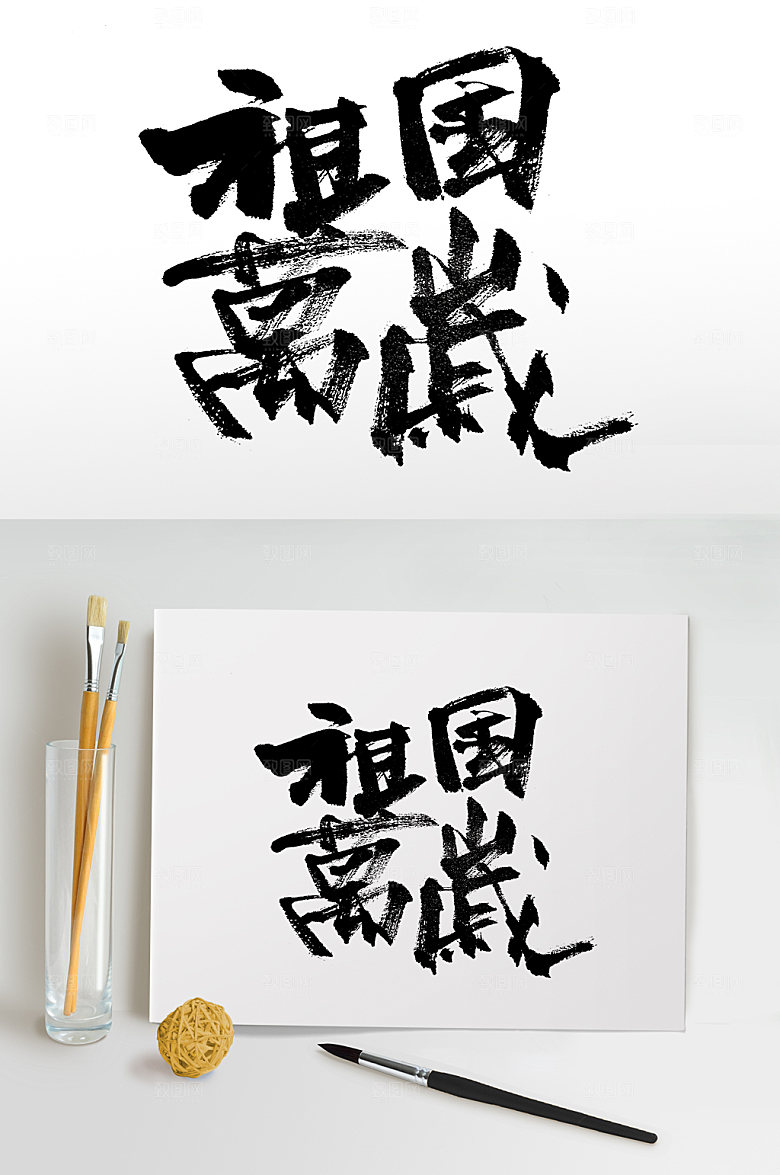 祖国
萬歲
祖国
萬歲